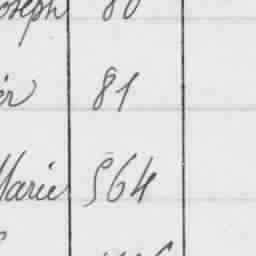 oseph 80
er 81
Marie 564